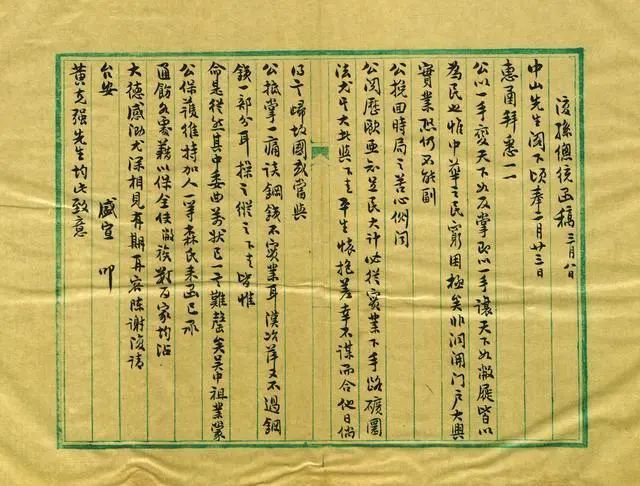 復孫總統函稿 三月八日
中山先生閣下頃奉二月廿三日
惠函拜悉一一
公以一手變天下如反掌即以一手讓天下如敝屣皆以
為民也惟中華之民窮困極矣非洞開門戶大興
實業恐仍不能副
公挽回時局之苦心側聞
公閱歷歐亞知足民大計必從實業下手路礦圜
法尤其大者與下走平生懷抱差幸不謀而合他日倘
得言歸故國或當與
公抵掌一痛談鋼鐵不實業耳漢冶萍又不過鋼
鐵一部分耳操之縱之下走皆惟
命是從然其中委曲萬狀已一言難罄矣吳中祖業蒙
公保護維持加人一等森氏來函已承
通飭各署藉以保全使敝族數百家均沾
大德感泐尤深相見有期再容陳謝復請
台安 盛宣 叩
黃克強先生均此致意